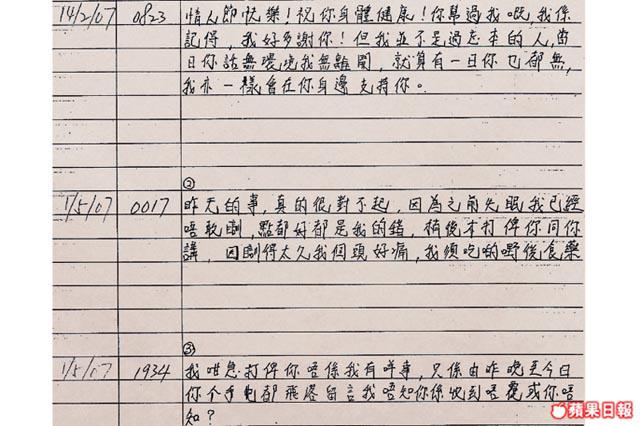 14/2/07 0823 情人節快樂!祝你身體健康!你幫過我嘅,我係
記得,我好多謝你!但我並不是過忘本的人,當
日你話無環境我無離開,就算有一日你乜都無,
我亦一樣會在你身邊支持你。
②
1/5/07 0017 昨天的事,真的很對不起,因為之前失眠我已經
唔敢瞓,點都好都是我的錯,稍後才打俾你同你
講,因瞓得太久我個頭好痛,我須吃啲嘢後食藥
③
1/5/07 1934 我咁急打俾你唔係我有咩事,只係由昨晚至今日
你个手電都飛落留言我唔知你係收到唔覆或你唔
知?
蘋果日報